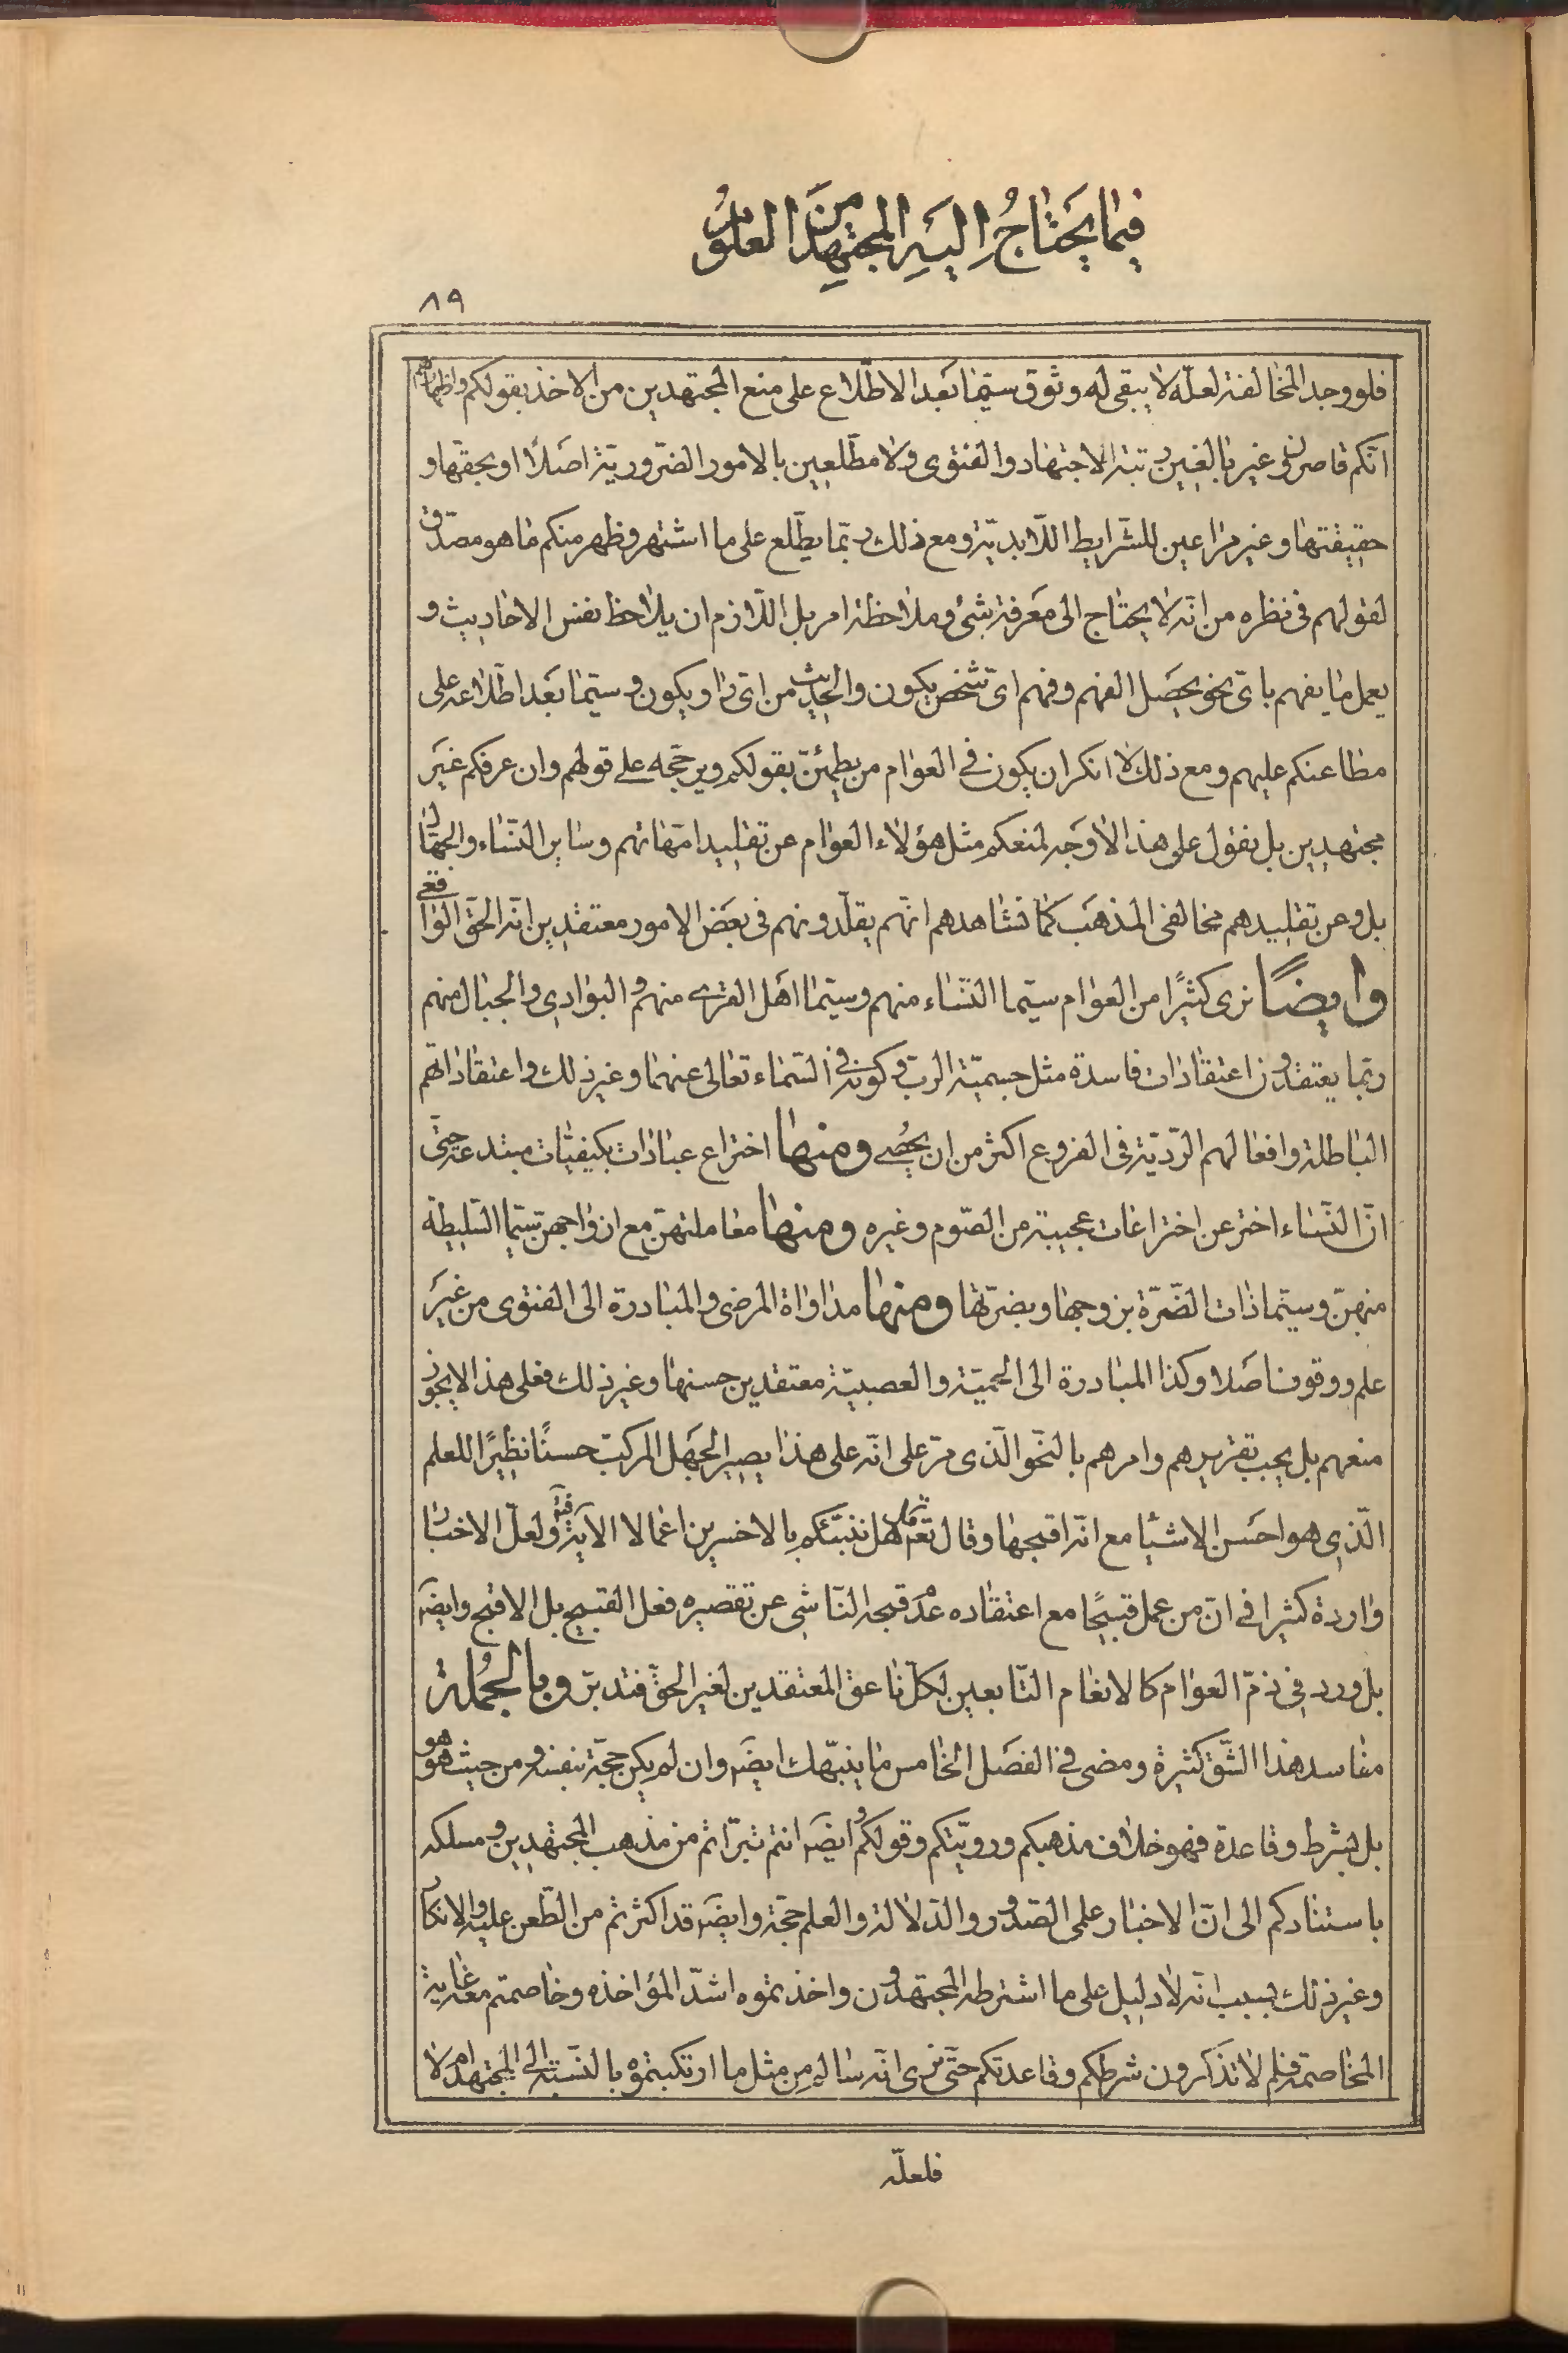 فيما يحتاج اليه المجتهد من العلوم
٨٩
فلو وجد المخالفة لعلّه لا يبقى له وثوق سيّما بعد الاطّلاع على منع المجتهدين من الاخذ بقولكم واظهارهم
انّكم قاصرون وغير بالغين رتبة الاجتهاد والفتوى ولا مطّلعين بالامور الضّروريّة اصلًا او بحقّها و
حقيقتها وغير مراعين للشّرايط اللّابديّة ومع ذلك ربّما يطّلع على ما اشتهر وظهر منكم ما هو مصدّق
لقولهم فى نظره من انّه لا يحتاج الى معرفة شئ وملاحظة امر بل اللّازم ان يلاحظ نفس الاحاديث و
يعمل ما يفهم باىّ نحو يحصل الفهم وفهم اىّ شخص يكون والحديث من اىّ راو يكون وسيّما بعد اطّلاعه على
مطاعنكم عليهم ومع ذلك لا انكر ان يكون فى العوام من يطمئنّ بقولكم ويرجّحه على قولهم وان عرفكم غير
مجتهدين بل نقول على هذا لا وجه لمنعكم مثل هؤلاء العوام عن تقليد امّهاتهم وساير النّساء والجهّال
بل وعن تقليدهم مخالفى المذهب كما نشاهدهم انّهم يقلّدونهم فى بعض الامور معتقدين انّه الحقّ الواقعى
وايضًا نرى كثيرًا من العوام سيّما النّساء منهم وسيّما اهل القرى منهم والبوادى والجبال منهم
ربّما يعتقدون اعتقادات فاسدة مثل جسميّة الرب وكونه فى السّماء تعالى عنهما وغير ذلك واعتقاداتهم
الباطلة وافعالهم الرّديّة فى الفروع اكثر من ان يحصى ومنها اختراع عبادات بكيفيّات مبتدعة حتّى
انّ النّساء اخترعن اختراعات عجيبة من الصّوم وغيره ومنها معاملتهنّ مع ازواجهنّ سيّما السّليطة
منهنّ وسيّما ذات الضّرّة بزوجها وبضرّتها ومنها مداواة المرضى والمبادرة الى الفتوى من غير
علم ووقوف اصلا وكذا المبادرة الى الحميّة والعصبيّة معتقدين حسنها وغير ذلك فعلى هذا لا يجوز
منعهم بل يجب تقريرهم وامرهم بالنّحو الّذى مرّ على انّه على هذا يصير الجهل المركّب حسنًا نظيرًا للعلم
الّذى هو احسن الاشيا مع انّه اقبحها وقال تعم قل هل ننبّئكم بالاخسرين اعمالا الآية فيه ولعلّ الاخبار
واردة كثيرا فى انّ من عمل قبيحًا مع اعتقاده عدم قبحه النّاشى عن تقصيره فعل القبيح بل الاقبح وايضَ
بل ورد فى ذمّ العوام كالانعام التّابعين لكلّ ناعق المعتقدين لغير الحقّ فتدبّر وبالجُملة
مفاسد هذا الشّق كثيرة ومضى فى الفصل الخامس ما ينبّهك ايضَ وان لم يكن حجّة بنفسه ومن حيث هو هو
بل بشرط وقاعدة فهو خلاف مذهبكم ورويّتكم وقولكم وايضَ انتم تبرّاتم من مذهب المجتهدين ومسلكه
باستنادكم الى انّ الاخبار على الصّدور والدّلالة والعلم حجّة وايضَ قد اكثرتم من الطّعن عليه والانكار
وغير ذلك بسبب انّه لا دليل على ما اشترطه المجتهدون واخذتموه اشدّ المؤاخذه وخاصمتم معه غاية
المخاصمة فلم لا تذكرون شرطكم وقاعدتكم حتّى نرى انّه سالم من مثل ما ارتكبتموه بالنّسبة الى المجتهد ام لا
فلعلّه